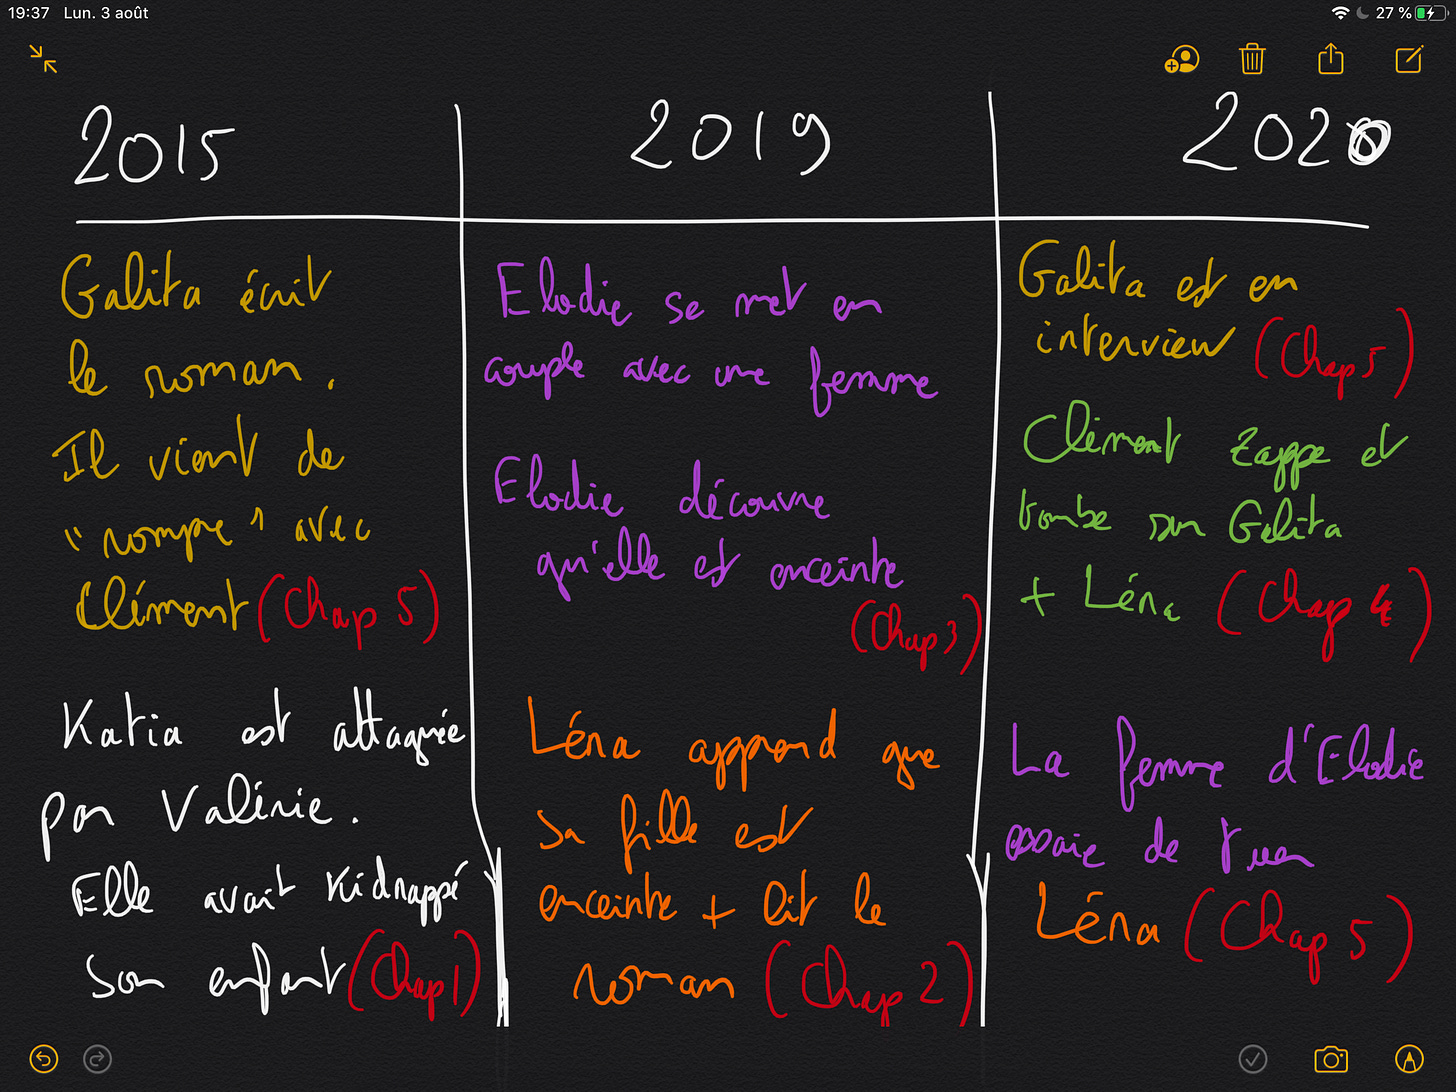 19:37 Lun. 3 août
27 %
2015
Galita écrit
le roman.
Il vient de
"rompre" avec
Clément (Chap 5)
Katia est attaquée
par Valérie.
Elle avait kidnappé
son enfant (Chap 1)
2019
Elodie se met en
couple avec une femme
Elodie découvre
qu'elle est enceinte
(Chap 3)
Léna apprend que
sa fille est
enceinte + lit le
roman (Chap 2)
2020
Galita est en
interview (Chap 5)
Clément zappe et
tombe sur Galita
+ Léna (Chap 4)
La femme d'Elodie
essaie de tuer
Léna (Chap 5)